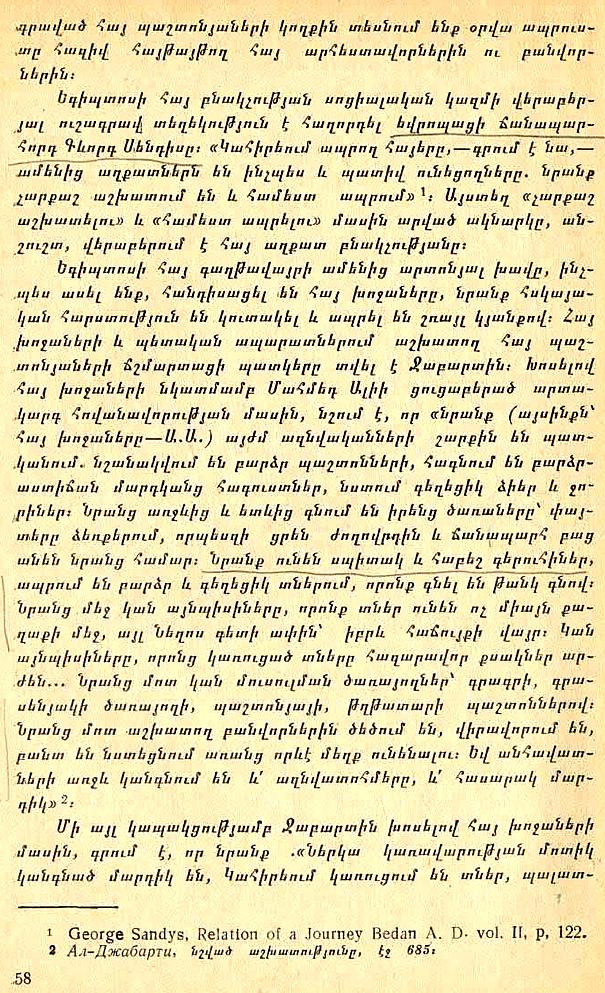 գրաված հայ պաշտոնյաների կողքին տեսնում ենք օրվա ապրուս-
տը հազիվ հայթայթող հայ արհեստավորներին ու բանվոր-
ներին։
Եգիպտոսի հայ բնակչության սոցիալական կազմի վերաբեր-
յալ ուշագրավ տեղեկություն է հաղորդել եվրոպացի ճանապար-
հորդ Գևորգ Սենդիսը։ «Կահիրեում ապրող հայերը,—գրում է նա,—
ամենից աղքատներն են ինչպես և պատիվ ունեցողները. նրանք
չարքաշ աշխատում են և համեստ ապրում» 1։ Այստեղ «չարքաշ
աշխատելու» և «համեստ ապրելու» մասին արված ակնարկը, ան-
շուշտ, վերաբերում է հայ աղքատ բնակչությանը։
Եգիպտոսի հայ գաղթավայրի ամենից արտոնյալ խավը, ինչ-
պես ասել ենք, հանդիսացել են հայ խոջաները, նրանք հսկայա-
կան հարստություն են կուտակել և ապրել են շռայլ կյանքով։ Հայ
խոջաների և պետական ապարատներում աշխատող հայ պաշ-
տոնյաների ճշմարտացի պատկերը տվել է Ջաբարտին։ Խոսելով
հայ խոջաների նկատմամբ Մահմեդ Ալիի ցուցաբերած արտա-
կարգ հովանավորության մասին, նշում է, որ «նրանք (այսինքն՝
հայ խոջաները—Ա.Ա.) այժմ ազնվականների շարքին են պատ-
կանում. նշանակվում են բարձր պաշտոնների, հագնում են բարձր-
աստիճան մարդկանց հագուստներ, նստում գեղեցիկ ձիեր և ջո-
րիներ։ Նրանց առջևից և ետևից գնում են իրենց ծառաները՝ փայ-
տերը ձեռքերում, որպեսզի ցրեն ժողովրդին և ճանապարհ բաց
անեն նրանց համար։ Նրանք ունեն սպիտակ և հաբեշ գերուհիներ,
ապրում են բարձր և գեղեցիկ տներում, որոնք գնել են թանկ գնով։
Նրանց մեջ կան այնպիսիները, որոնք տներ ունեն ոչ միայն քա-
ղաքի մեջ, այլ Նեղոս գետի ափին՝ իբրև հաճույքի վայր։ Կան
այնպիսիները, որոնց կառուցած տները հազարավոր քսակներ ար-
ժեն... Նրանց մոտ կան մուսուլման ծառայողներ՝ գրագրի, գրա-
սենյակի ծառայողի, պաշտոնյայի, թղթատարի պաշտոններով։
Նրանց մոտ աշխատող բանվորներին ծեծում են, վիրավորում են,
բանտ են նստեցնում առանց որևէ մեղք ունենալու։ Եվ անհավատ-
ների առջև կանգնում են և՛ ազնվատոհմերը, և՛ հասարակ մար-
դիկ» 2։
Մի այլ կապակցությամբ Ջաբարտին խոսելով հայ խոջաների
մասին, գրում է, որ նրանք .«ներկա կառավարության մոտիկ
կանգնած մարդիկ են, Կահիրեում կառուցում են տներ, պալատ-
1 George Sandys, Relation of a Journey Bedan A. D. vol. II, p, 122.
2 Ал-Джабарти, նշված աշխատությունը, էջ 685։
58